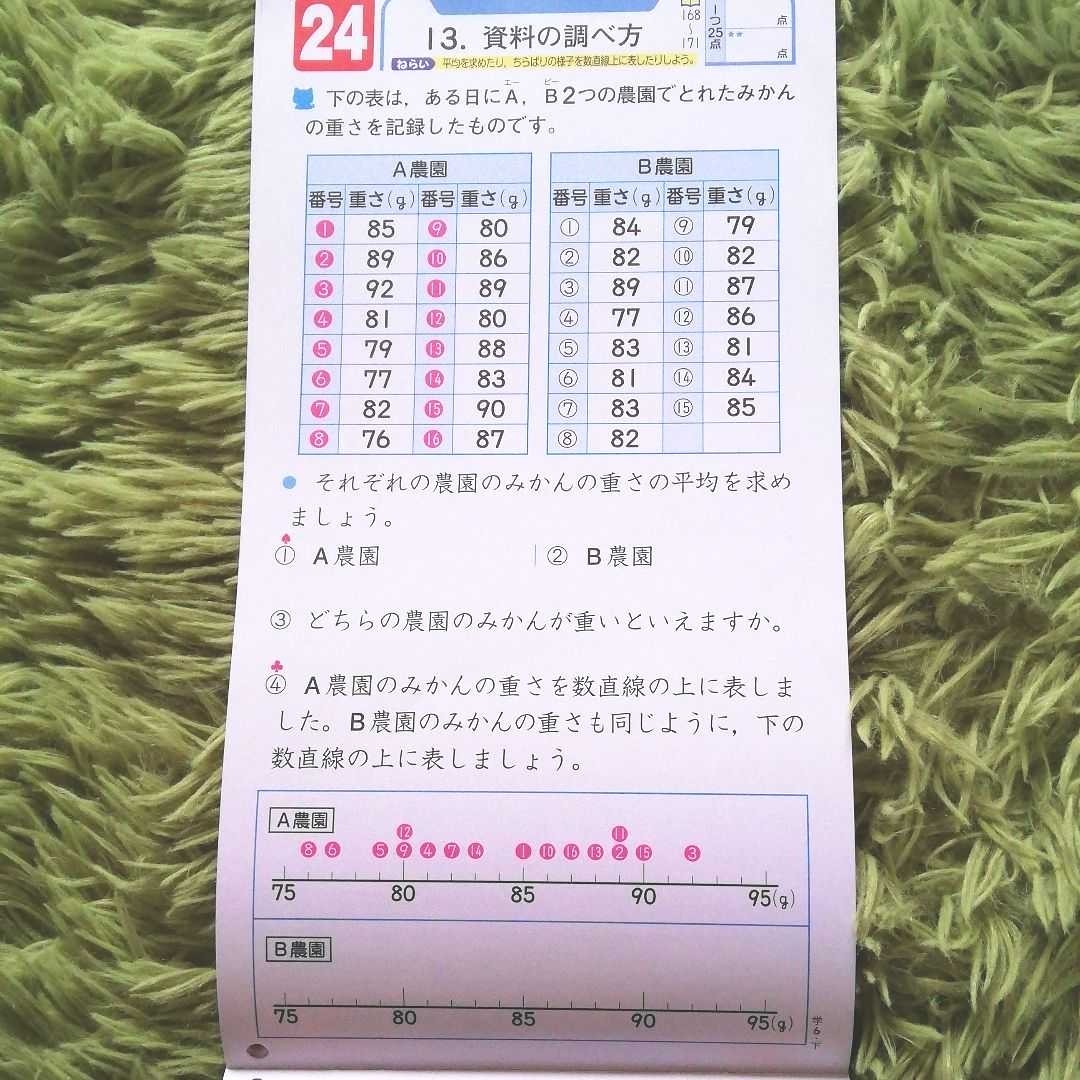 24
13. 資料の調べ方
168
〜
171
1つ25点
点
点
ねらい 平均を求めたり，ちらばりの様子を数直線上に表したりしよう。
エー ビー
下の表は，ある日にA，B2つの農園でとれたみかん
の重さを記録したものです。
A農園
番号 重さ(g) 番号 重さ(g)
❶ 85 ❾ 80
❷ 89 ❿ 86
❸ 92 ⓫ 89
❹ 81 ⓬ 80
❺ 79 ⓭ 88
❻ 77 ⓮ 83
❼ 82 ⓯ 90
❽ 76 ⓰ 87
B農園
番号 重さ(g) 番号 重さ(g)
① 84 ⑨ 79
② 82 ⑩ 82
③ 89 ⑪ 87
④ 77 ⑫ 86
⑤ 83 ⑬ 81
⑥ 81 ⑭ 84
⑦ 83 ⑮ 85
⑧ 82
● それぞれの農園のみかんの重さの平均を求め
ましょう。
① A農園 ② B農園
③ どちらの農園のみかんが重いといえますか。
④ A農園のみかんの重さを数直線の上に表しま
した。B農園のみかんの重さも同じように，下の
数直線の上に表しましょう。
A農園
⓬ ⓫
❽ ❻ ❺ ❾ ❹ ❼ ⓮ ❶ ❿ ⓰ ⓭ ❷ ⓯ ❸
75 80 85 90 95(g)
B農園
75 80 85 90 95(g)
学6・下